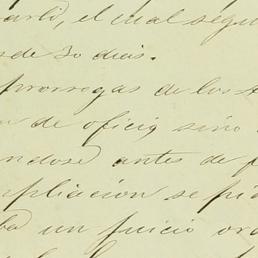 el cual segu
de 30 dias.
prorrogas de los
de oficio sino
ndose antes de
mpliacion se pid
un juicio or